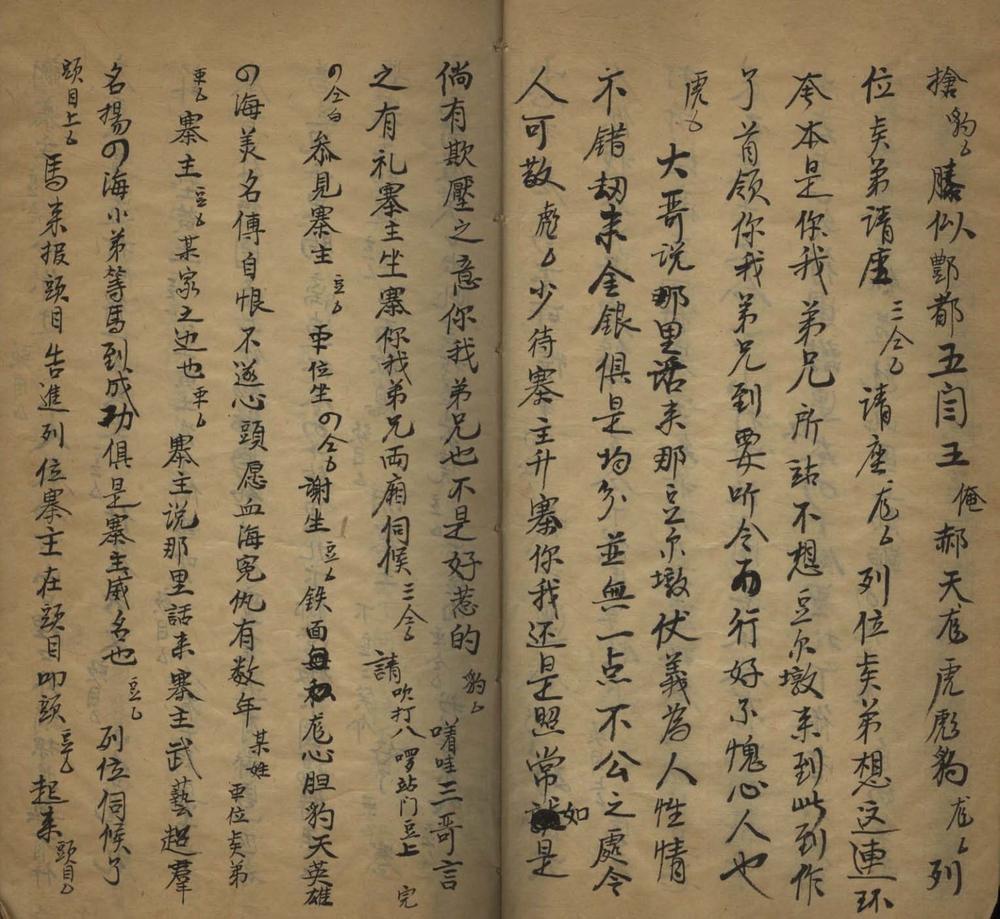 搶 豹白 勝似酆都五閆王 俺郝天彪虎彪豹 彪白 列
位贠弟請座 三仝白 請座 彪白 列位贠弟想这連环
夆本是你我弟兄所站不想豆尔墩来到此到作
了首領你我弟兄到要听令而行好不愧心人也
虎白 大哥说那里话来那豆尔墩伏義為人性情
不錯刼来金銀俱是均分並無一点不公之處令
人可敬 彪白 少待寨主升寨你我还是照常如是
倘有欺壓之意你我弟兄也不是好惹的 豹白 嗜哇三哥言
之有礼寨主坐寨你我弟兄両廂伺候 三仝白 請 吹打八啰站门豆上 完
四仝白 叅見寨主 豆白 車位坐 四仝白 謝坐 豆白 鉄面無私彪心胆豹天英雄
四海美名傳自恨不遂心頭愿血海冤仇有数年 某姓 車位贠弟
車白 寨主 豆白 某家之边也 車白 寨主说那里話来寨主武藝超羣
名揚四海小弟等馬到成功俱是寨主威名也 豆白 列位伺候了
頭目上白 馬来报頭目告進列位寨主在頭目叩頭 豆白 起来 頭目白